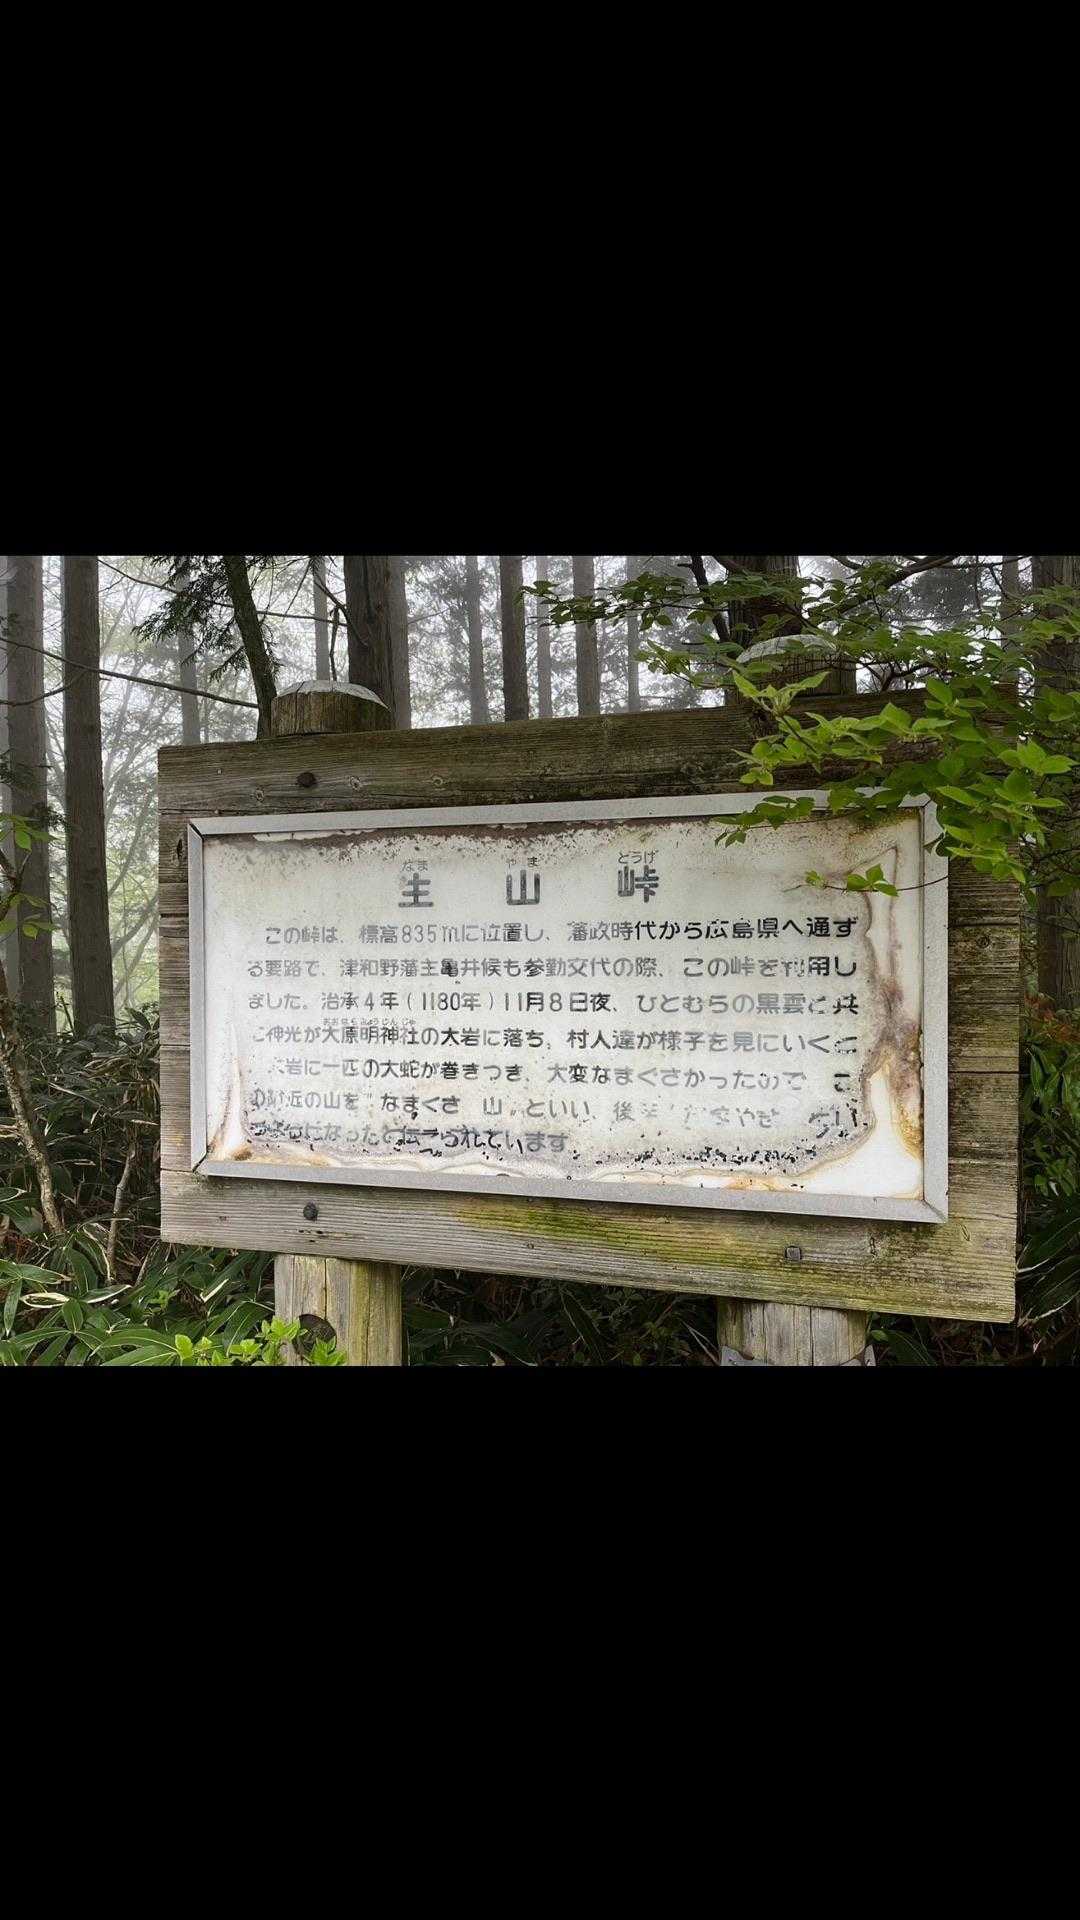 なま やま とうげ
生山峠
この峠は、標高835mに位置し、藩政時代から広島県へ通ず
る要路で、津和野藩主亀井候も参勤交代の際、この峠を利用し
ました。治承4年(1180年)11月8日夜、ひとむらの黒雲と共
に神光が大原明神社の大岩に落ち、村人達が様子を見にいくと
大岩に一匹の大蛇が巻きつき、大変なまぐさかったので、こ
の附近の山を"なまぐさ 山"といい、後
うようになったと伝えられています